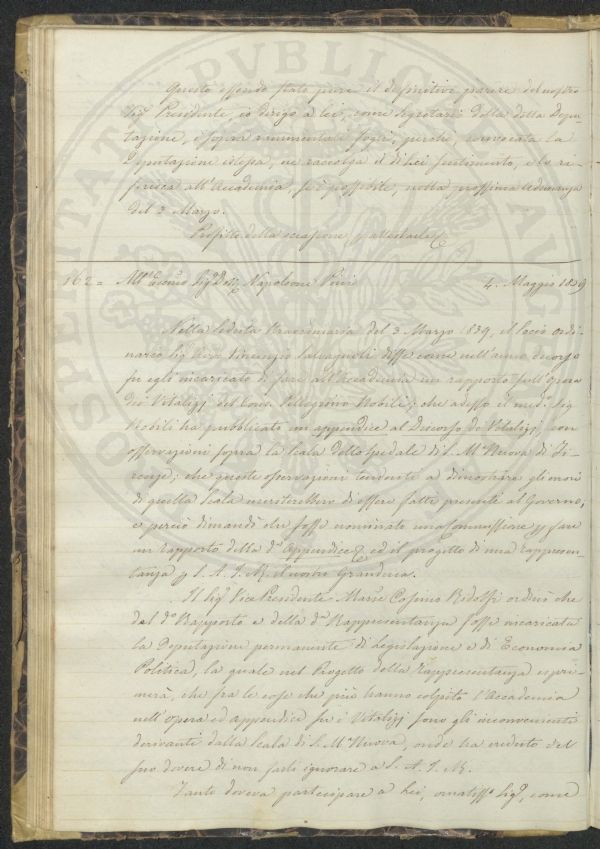 Questo essendo stato pure il definitivo parere del nostro
Sig.r Presidente, io dirigo a lei, come Segretario della detta Depu-
tazione, i sopra rammentati fogli, perché, convocata la
Deputazione istessa, ne raccolga il di Lei sentimento, e lo ri-
ferisca all'Accademia, se è possibile, nella prossima Adunanza
del 3 Marzo.
Profitto della occasione p attestarle
162= All' Sig.r Dott. Napoleone Pini 4. Maggio 1839
Nella Seduta Straordinaria del 3 Marzo 1839, il Socio ordi-
nario Sig.r Vincenzio Salvagnoli disse come nell'anno decorso
fu egli incaricato di fare all'Accademia un rapporto sull'opera
dei Vitalizj del Pellegrino Nobili; che adesso il med.o Sig.
Nobili ha pubblicato un appendice al Discorso de Vitalizj con
osservazioni sopra la Scala dello Spedale di S. M.a Nuova di Fi-
renze; che queste osservazioni tendenti a dimostrare gli errori
di quella Scala meriterebbero di essere fatte presenti al Governo,
e perciò dimandò che fosse nominata una Commissione p fare
un rapporto della d.a Appendice, ed il progetto di una rappresen-
tanza p S. A. I. R. il nostro Granduca.
Il Sig.r Vice Presidente March.e Cosimo Ridolfi ordinò che
del d.o Rapporto e della d.a Rappresentanza fosse incaricata
la Deputazione permanente di Legislazione e di Economia
Politica, la quale nel Progetto della rappresentanza espri-
merà, che fra le cose che più hanno colpito l'Accademia
nell'opera ed appendice su i Vitalizj sono gli inconvenienti
derivanti dalla Scala di S. M.a Nuova, onde ha creduto del
suo dovere di non farli ignorare a S. A. I. R.
Tanto doveva partecipare a Lei, ornatiss.o Sig.r, come